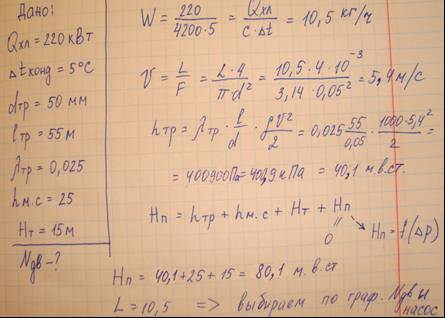 Дано:
Qхл = 220 кВт
Δtконд = 5°C
dтр = 50 мм
lтр = 55 м
λтр = 0,025
hм.с = 25
Hт = 15 м
Nдв - ?
W = 220 / 4200·5 = Qхл / c·Δt = 10,5 кг/ч
V = L / F = L·4 / π·d² = 10,5·4·10⁻³ / 3,14·0,05² = 5,4 м/с
hтр = λтр · l/d · ρV²/2 = 0,025 55/0,05 · 1000·5,4²/2 =
= 400900Па = 400,9 кПа = 40,1 м.в.ст.
Hп = hтр + hм.с + Hт + Hп
0
Hп = f(Δp)
Hп = 40,1 + 25 + 15 = 80,1 м.в.ст
L = 10,5 => выбираем по граф. Nдв и
насос